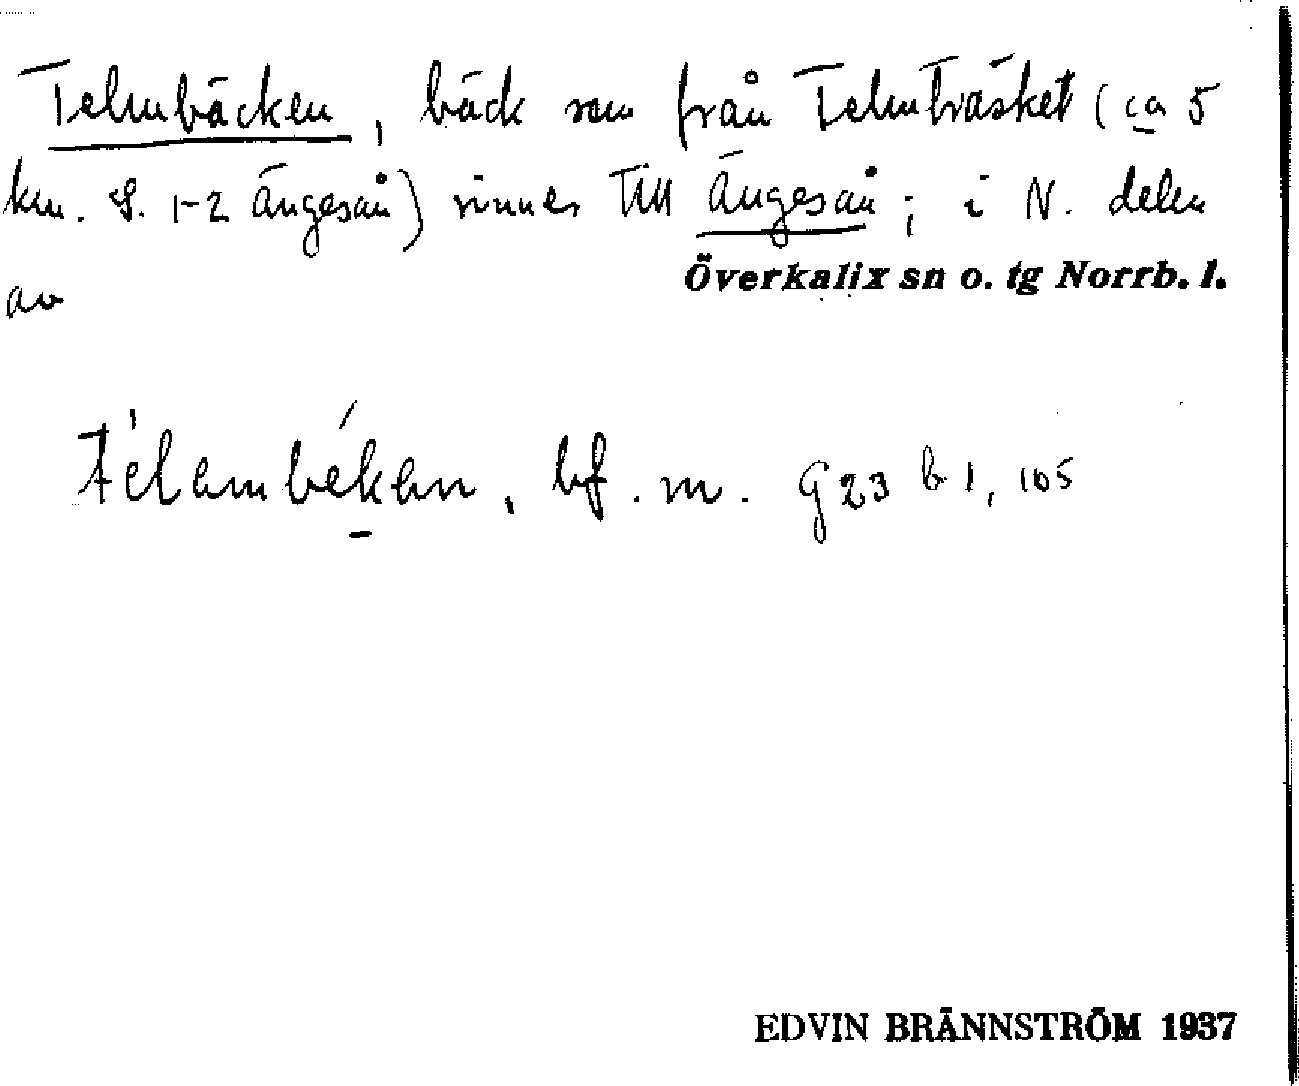 Telmbäcken, bäck som från Telmträsket (ca 5
km. S. 1-2 Ängesån) rinner till Ängesån; i N. delen
av Överkalix sn o. tg Norrb. l.
télambékan, bf. m. G23 b 1, 105
EDVIN BRÄNNSTRÖM 1937